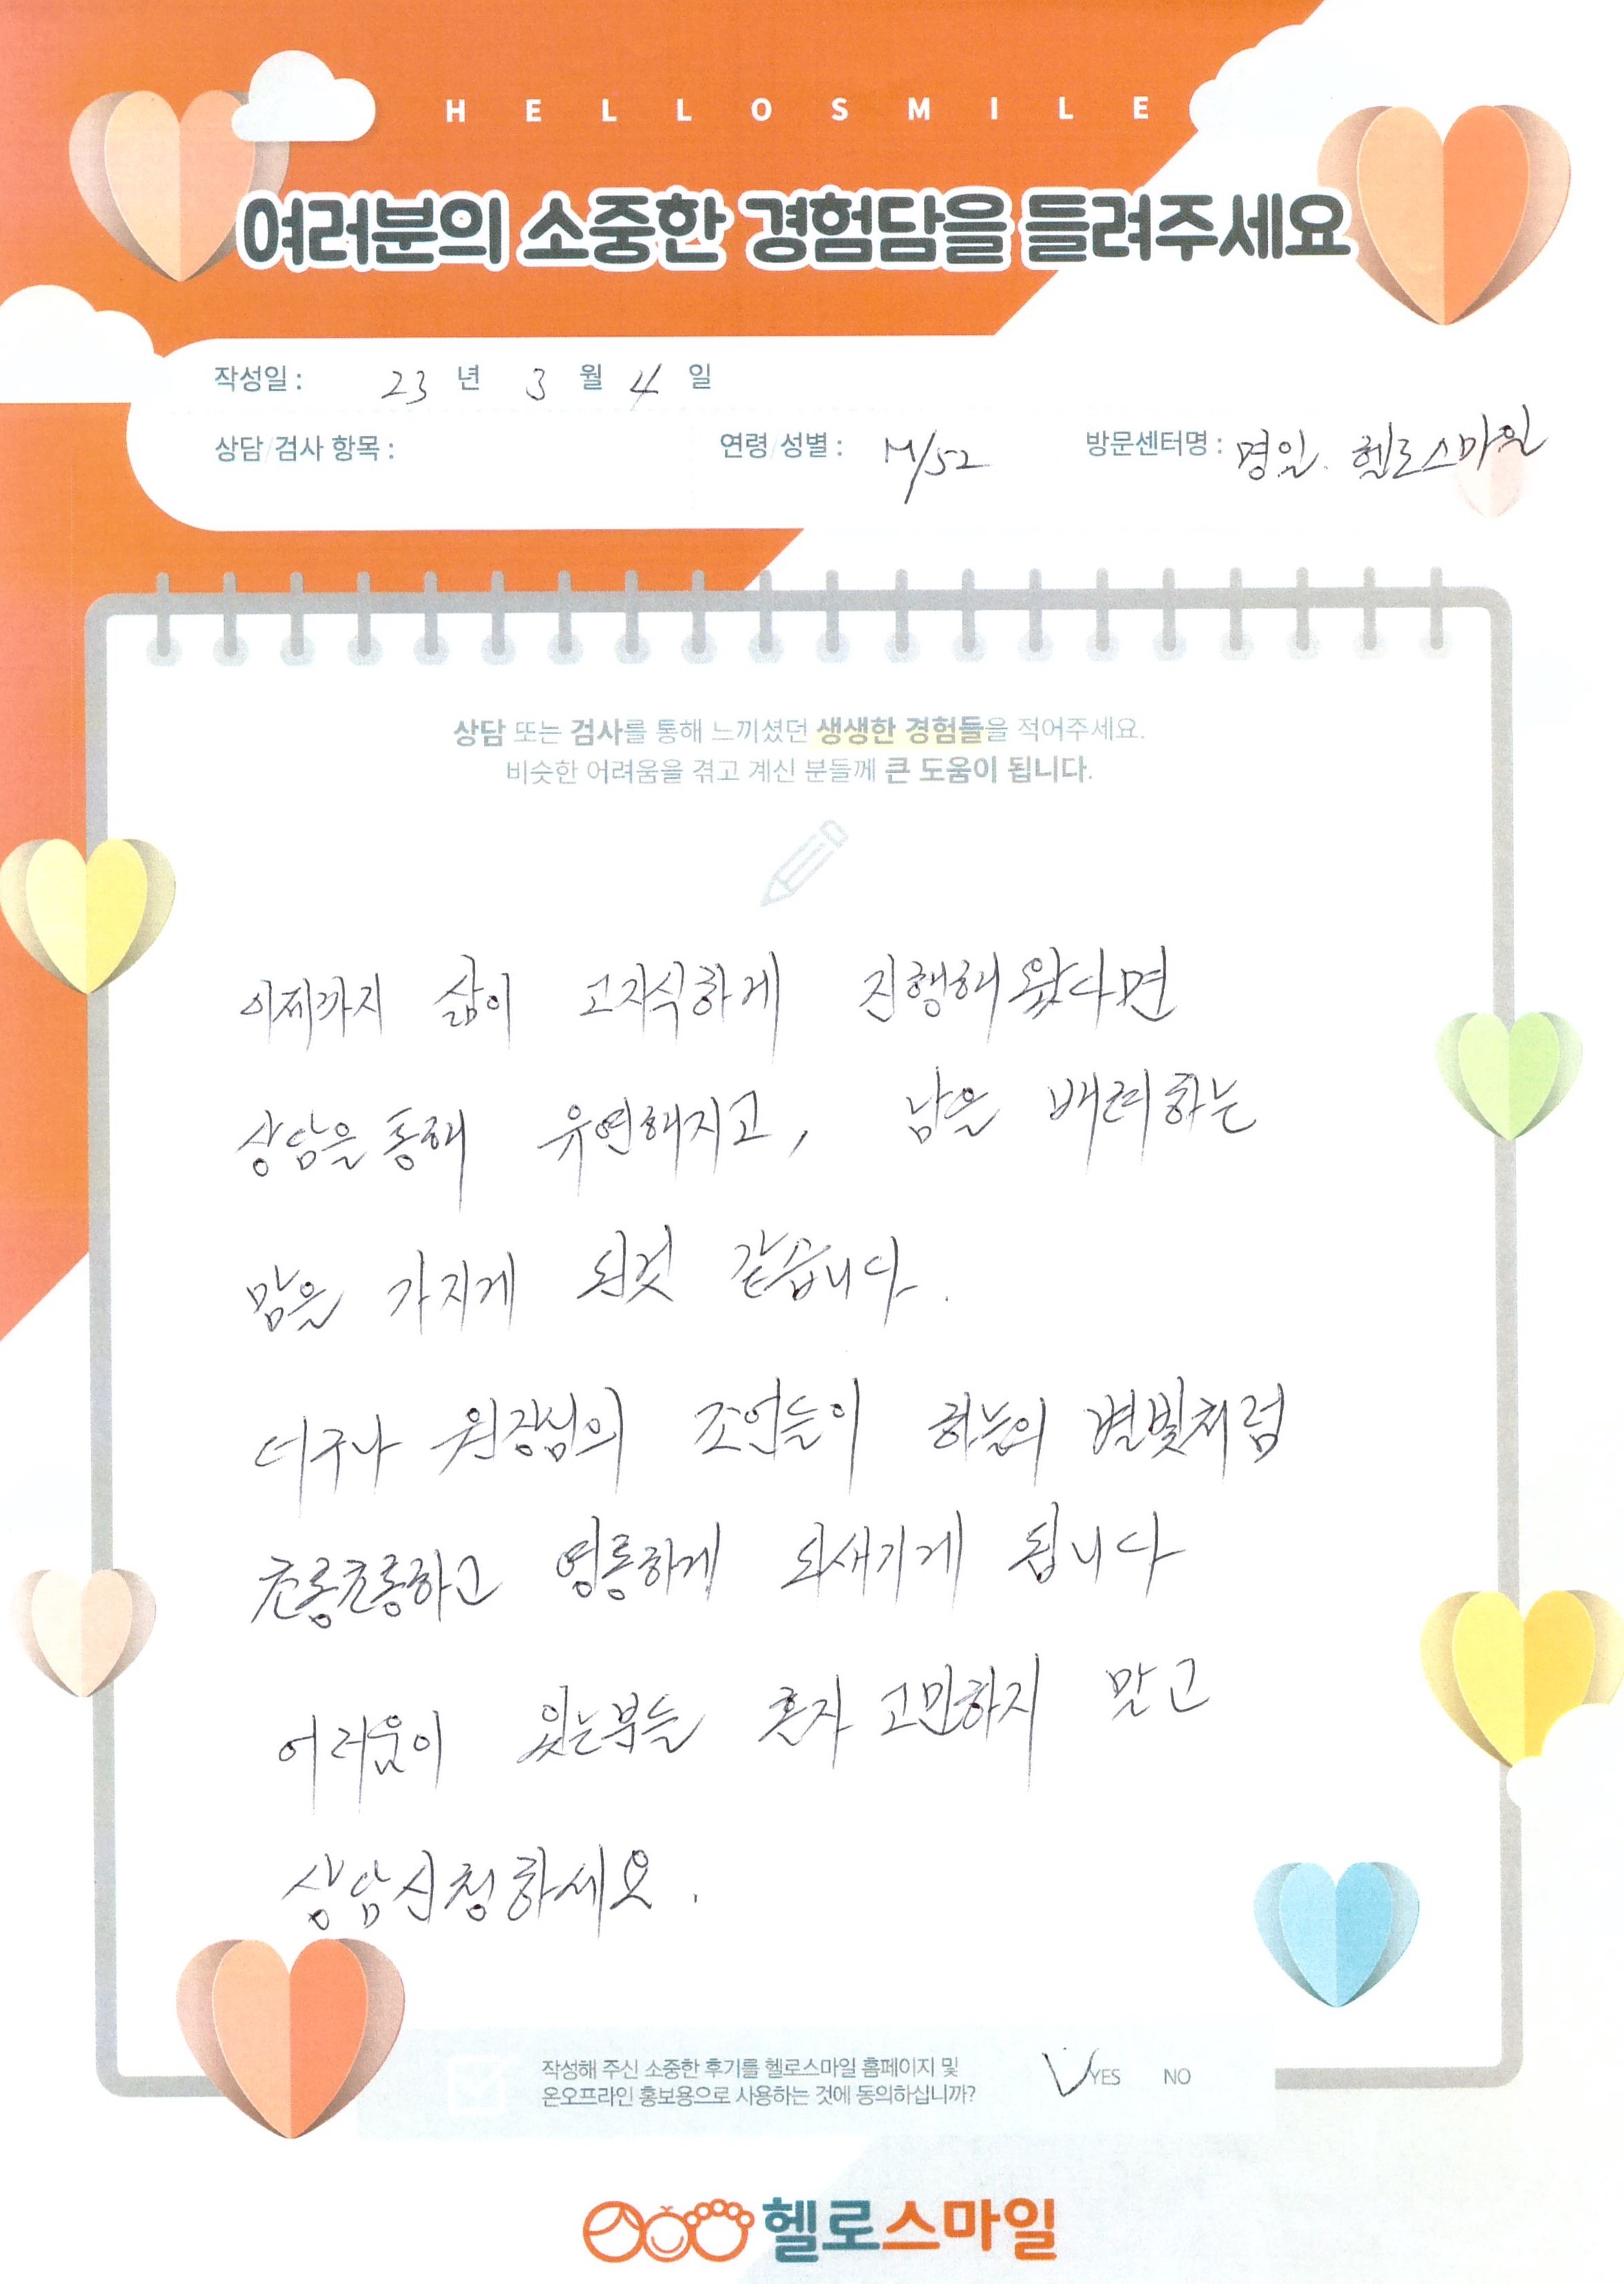 HELLOSMILE
여러분의 소중한 경험담을 들려주세요
작성일 : 23 년 3 월 4 일
상담/검사 항목 : 연령/성별 : M/52 방문센터명 : 명일. 헬로스마일
상담 또는 검사를 통해 느끼셨던 생생한 경험들을 적어주세요.
비슷한 어려움을 겪고 계신 분들께 큰 도움이 됩니다.
이제까지 삶이 고지식하게 진행해왔다면
상담을 통해 유연해지고, 남을 배려하는
맘을 가지게 된것 같습니다.
더구나 원장님의 조언들이 하늘의 별빛처럼
초롱초롱하고 영롱하게 되새기게 됩니다
어려움이 있는분들 혼자 고민하지 말고
상담신청하세요.
작성해 주신 소중한 후기를 헬로스마일 홈페이지 및
온오프라인 홍보용으로 사용하는 것에 동의하십니까? YES NO
헬로스마일